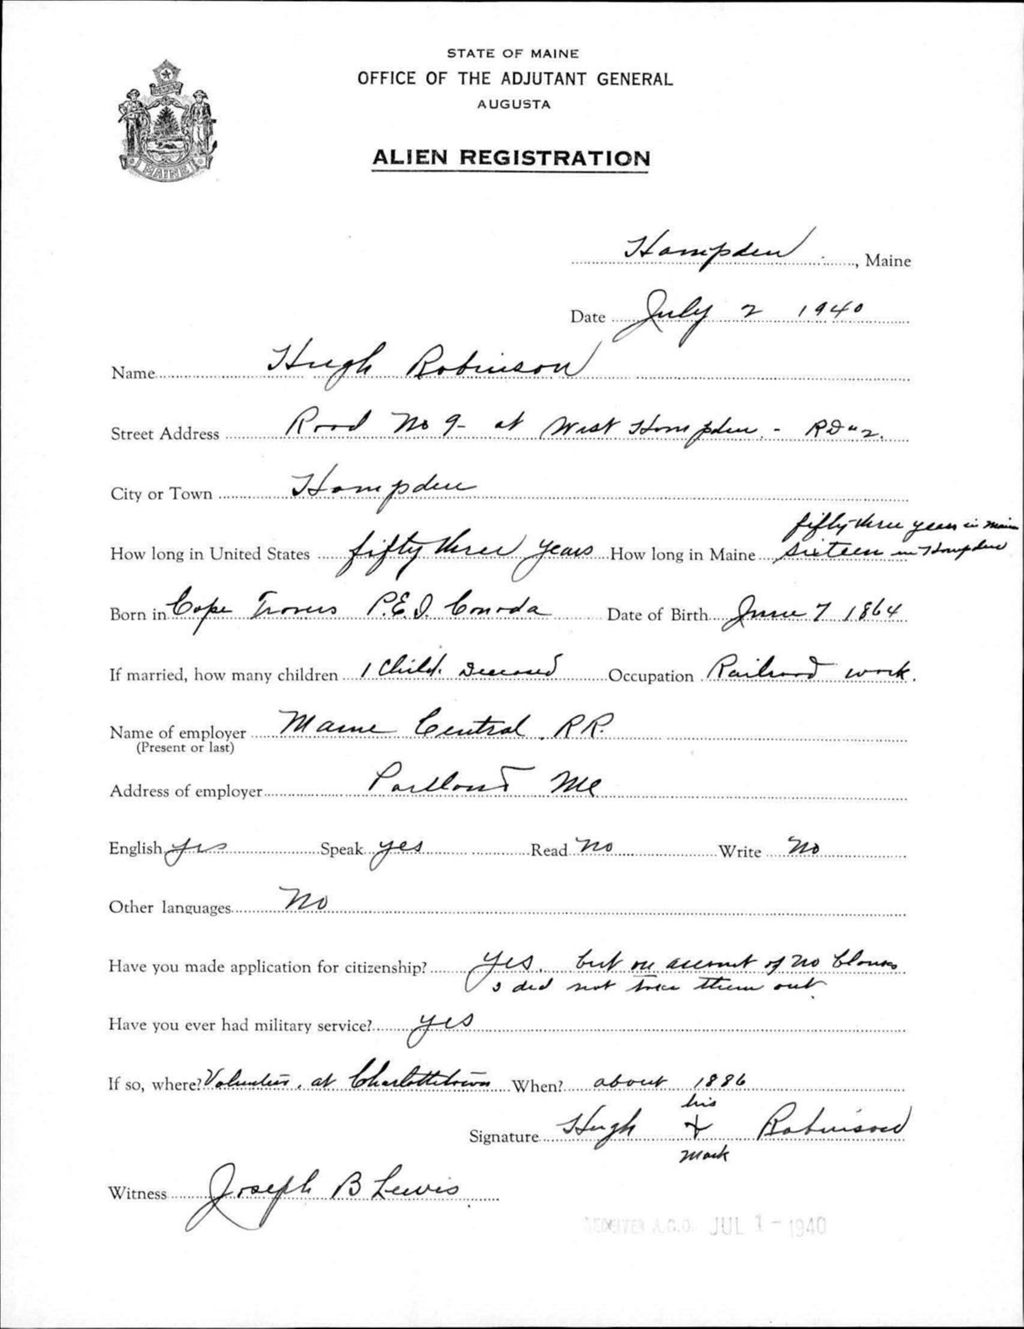 STATE OF MAINE
OFFICE OF THE ADJUTANT GENERAL
AUGUSTA
ALIEN REGISTRATION
MAINE
Hampden, Maine
Date July 2 1940
Name Hugh Robinson
Street Address Road No 9 - at West Hampden. - RD "2.
City or Town Hampden
fifty three years in Maine
How long in United States fifty three years How long in Maine sixteen in Hampden
Born in Cape Travers P.E.I. Canada Date of Birth June 7 1864
If married, how many children 1 Child. Deceased Occupation Railroad work.
Name of employer Maine Central RR.
(Present or last)
Address of employer Portland Me
English yes Speak yes Read No Write No
Other languages No
Have you made application for citizenship? Yes. but on account of no
I did not them out
Have you ever had military service? yes
If so, where? Volunteer. at Charlottetown When? about 1886
his
Signature Hugh + Robinson
mark
Witness Joseph B Lewis
RECEIVED A.G.O. JUL 1 - 1940